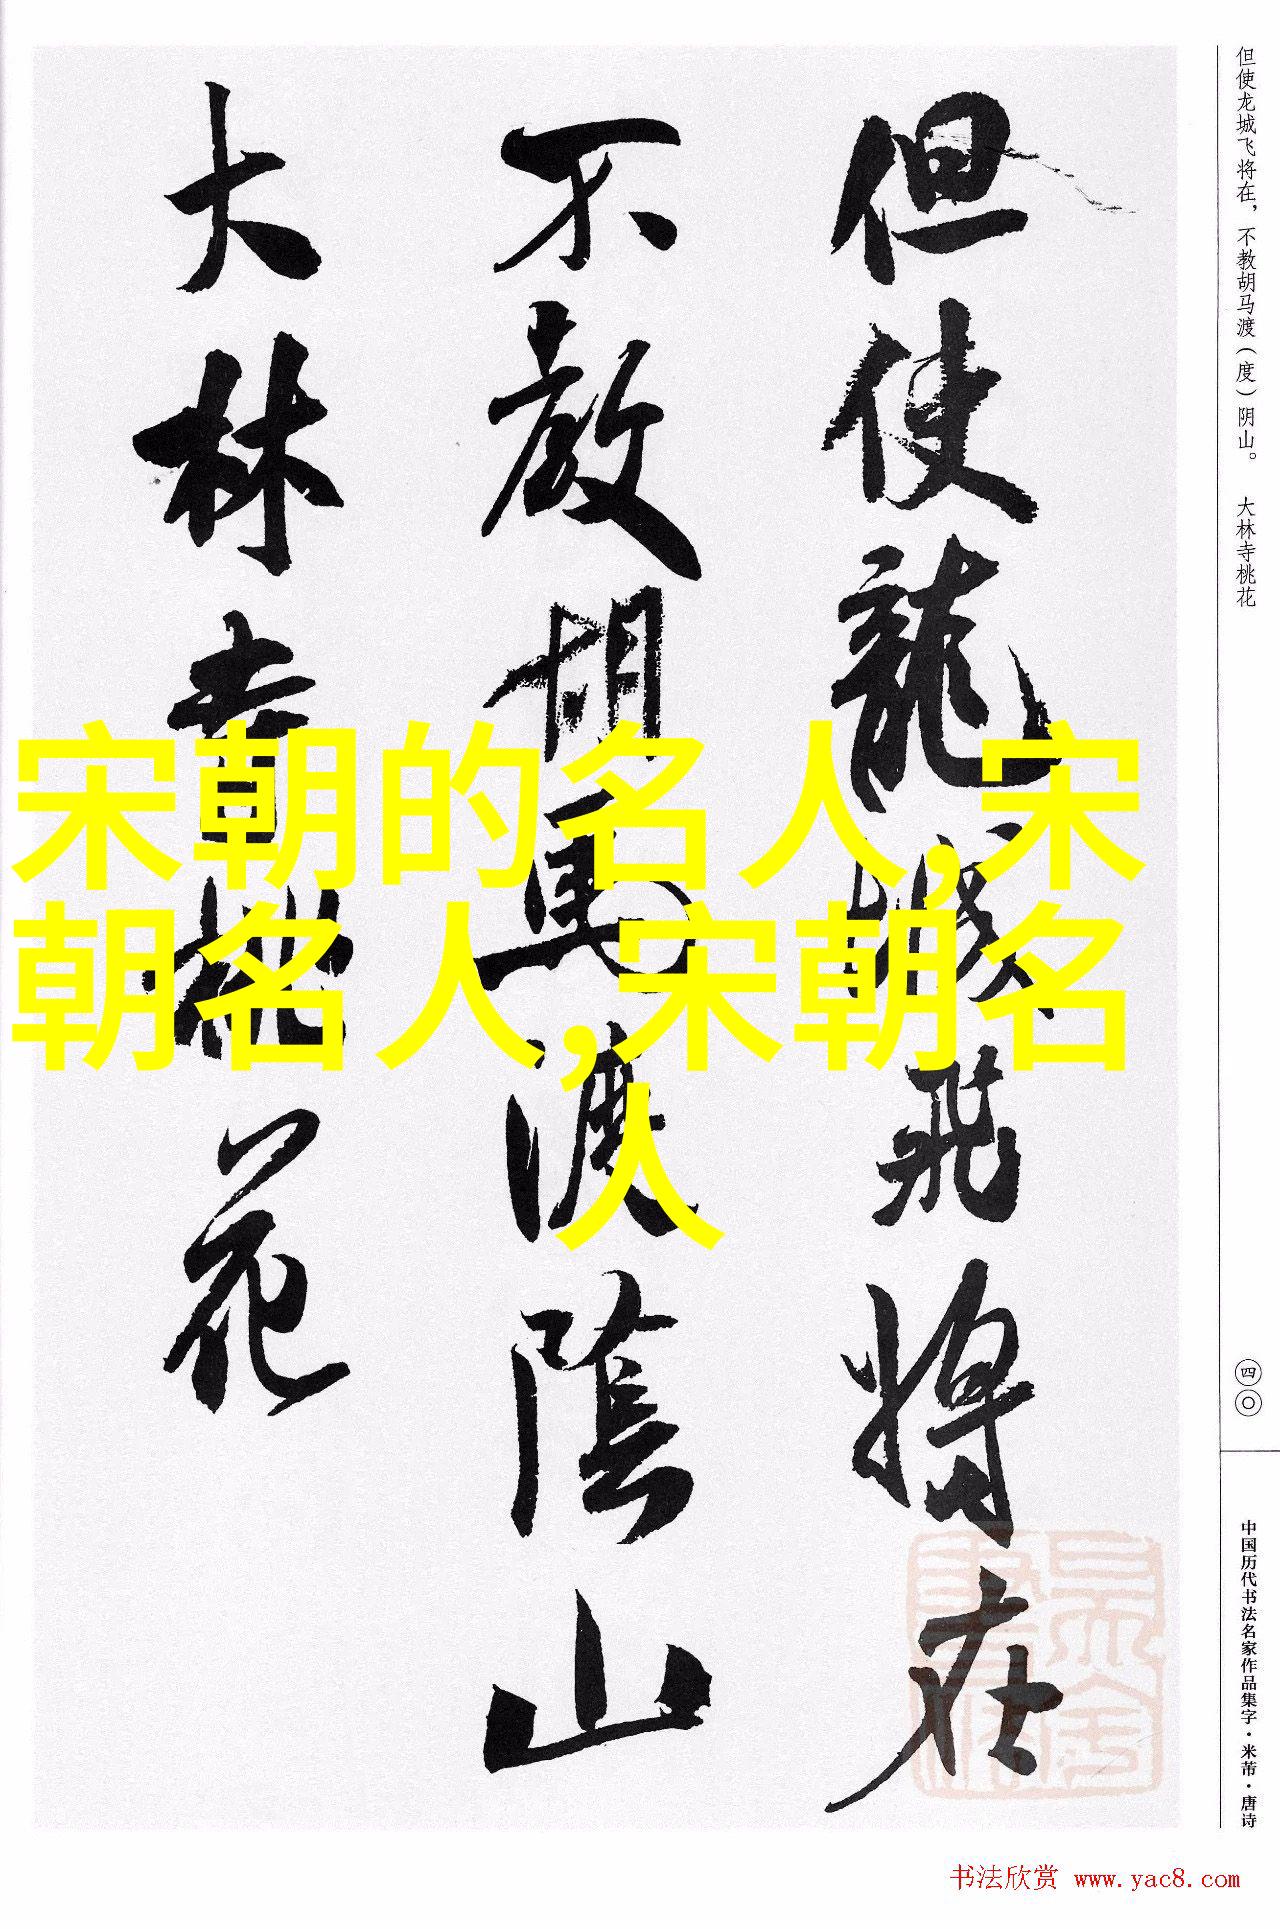 但使龍城飛將在
不教胡馬渡陰山
大林寺桃花
宋朝的名人,宋
朝名人,宋朝名
人
但使龙城飞将在，不教胡马渡（度）阴山。 大林寺桃花
四〇
中国历代书法名家作品集字·米芾·唐诗
书法欣赏 www.yac8.com